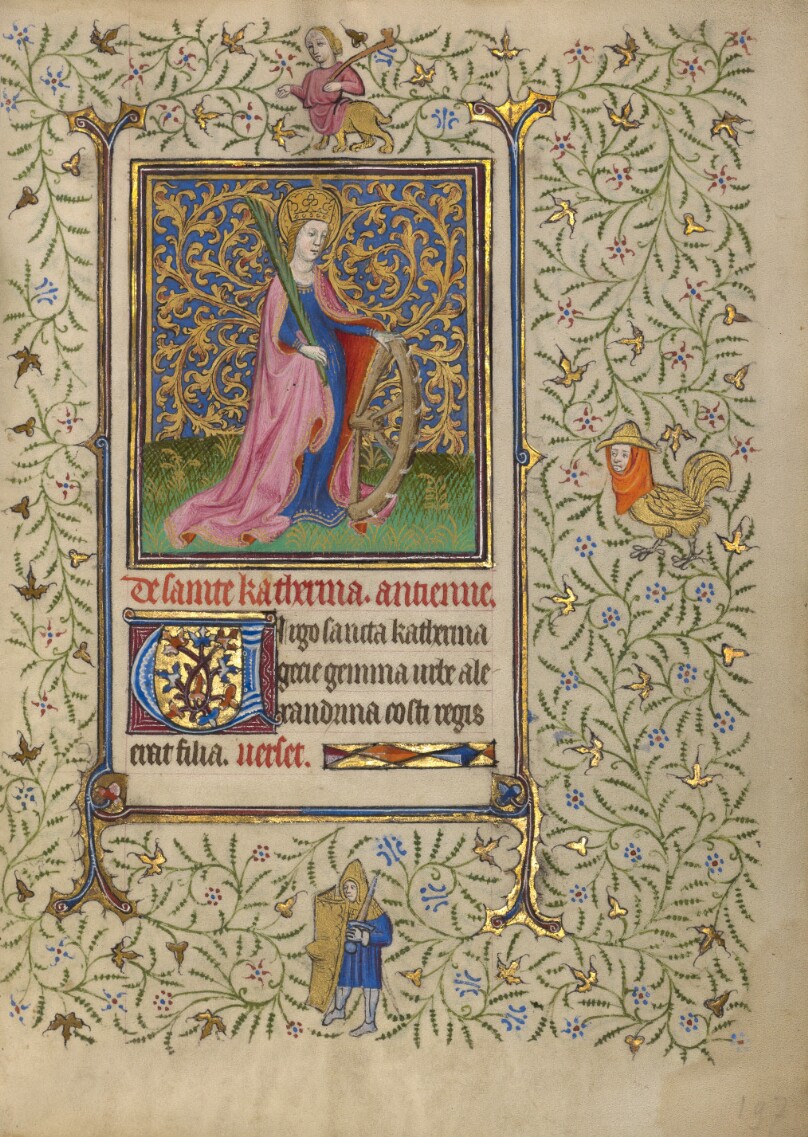 De sainte katherina. antienne.
Virgo sancta katherina
grecie gemma urbe ale
xandrina costi regis
erat filia. verset.
197